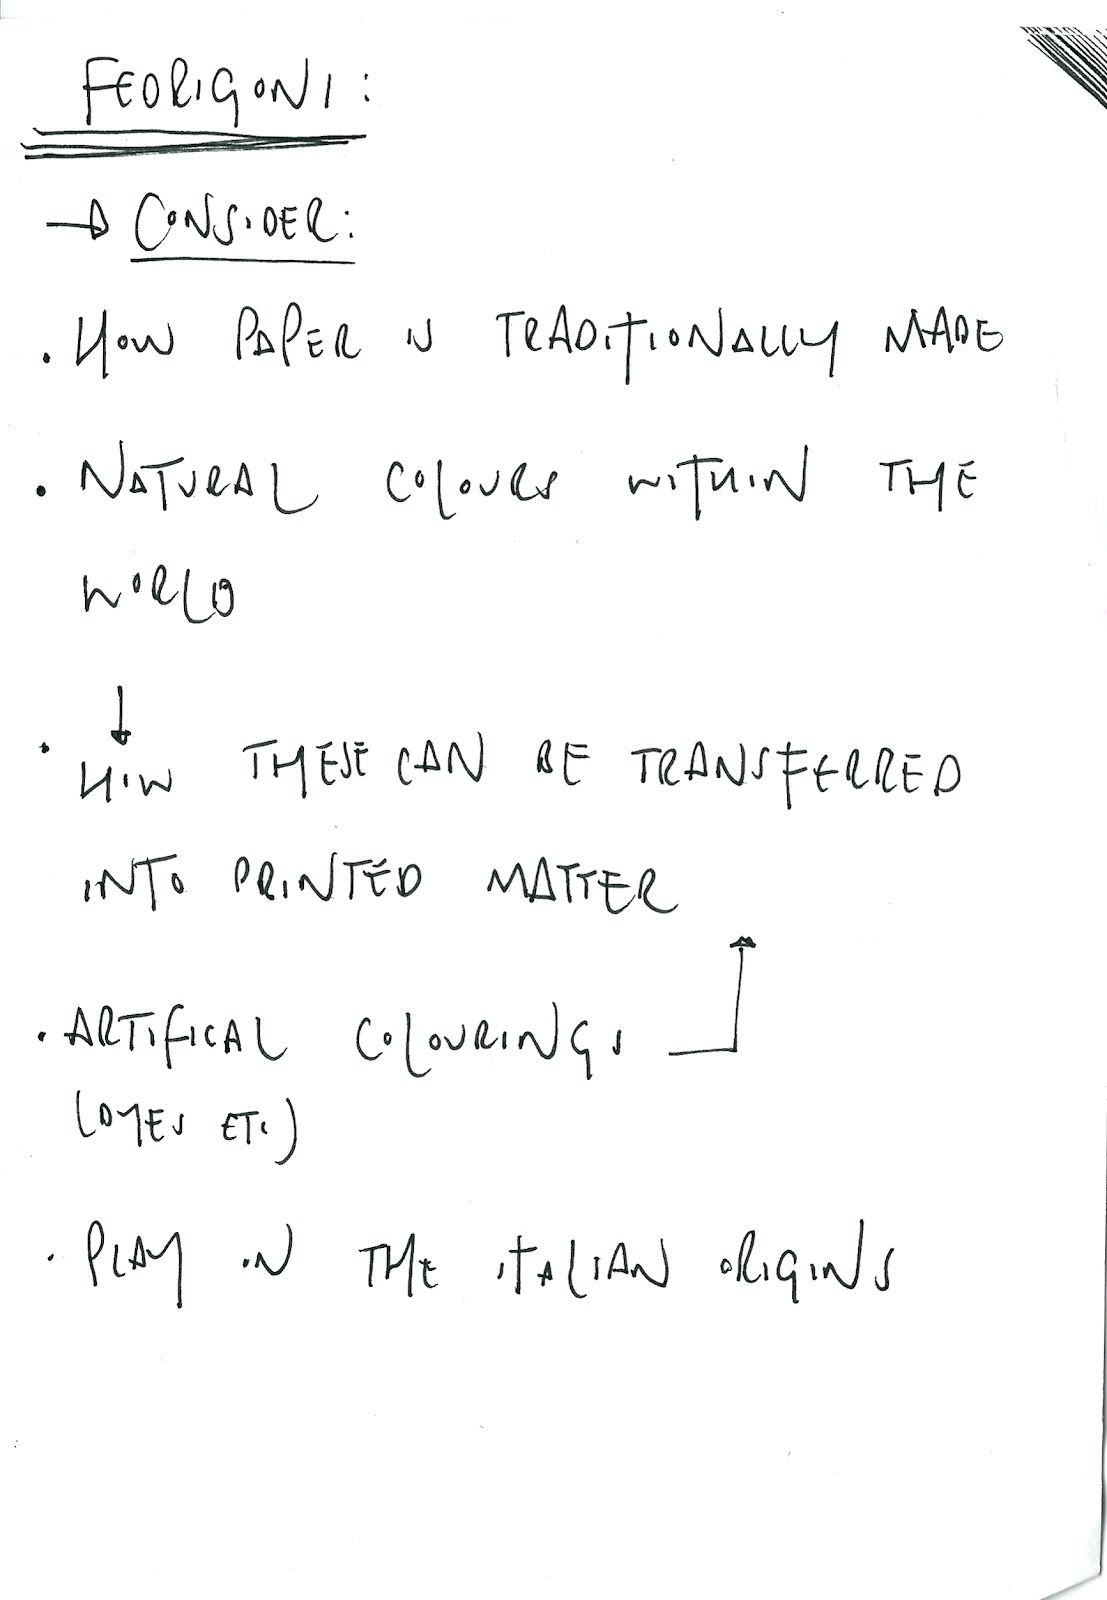 FEDRIGONI:
→ CONSIDER:
• HOW PAPER IS TRADITIONALLY MADE
• NATURAL COLOURS WITHIN THE
WORLD
↓
• HOW THESE CAN BE TRANSFERRED
INTO PRINTED MATTER
• ARTIFICAL COLOURINGS
(DYES ETC)
• PLAY ON THE ITALIAN ORIGINS